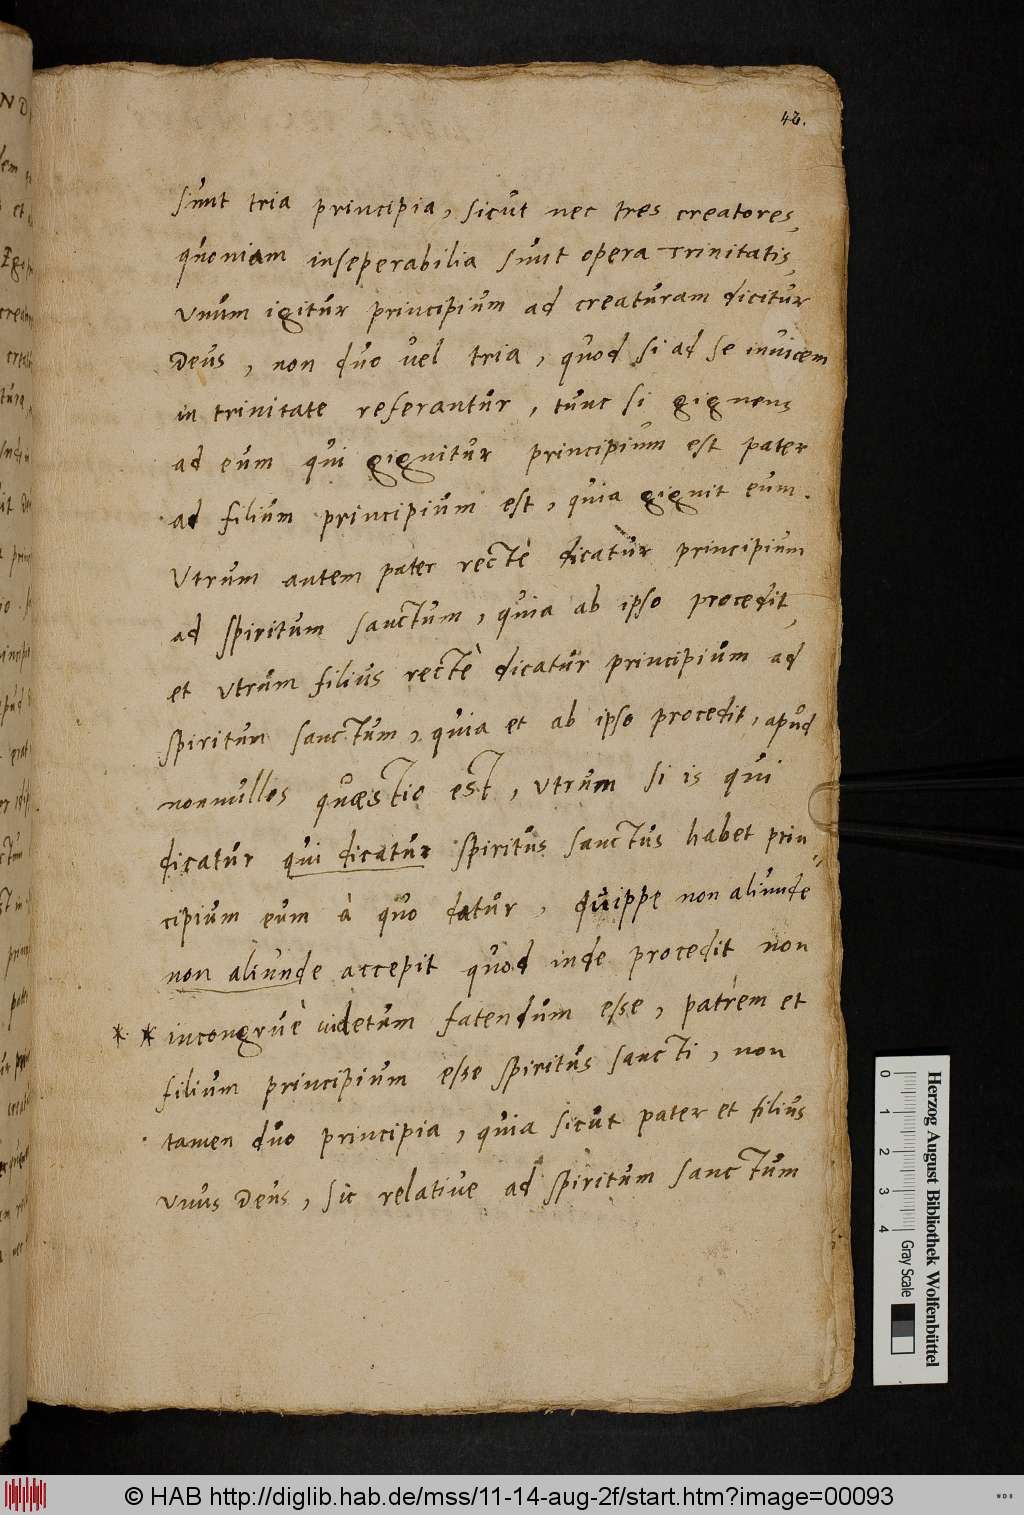 42.
sunt tria principia, sicut nec tres creatores,
quoniam inseperabilia sunt opera Trinitatis,
Vnum igitur principium ad creaturam dicitur
Deus, non duo vel tria, quod si ad se invicem
in trinitate referantur, tunc si gignens
ad eum qui gignitur principium est pater
ad filium principium est, quia gignit eum.
Vtrum autem pater rectè dicatur principium
ad spiritum sanctum, quia ab ipso procedit,
et vtrum filius rectè dicatur principium ad
spiritum sanctum, quia et ab ipso procedit, apud
nonnullos quæstio est, vtrum si is qui
dicatur qui dicatur spiritus sanctus habet prin"
cipium eum à quo datur, quippe non aliunde
non aliunde accepit quod inde procedit non
* * incongruè videtum fatendum esse, patrem et
filium principium esse spiritus sancti, non
tamen duo principia, quia sicut pater et filius
vnus Deus, sic relative ad spiritum sanctum
Herzog August Bibliothek Wolfenbüttel
0 1 2 3 4 Gray Scale
© HAB http://diglib.hab.de/mss/11-14-aug-2f/start.htm?image=00093